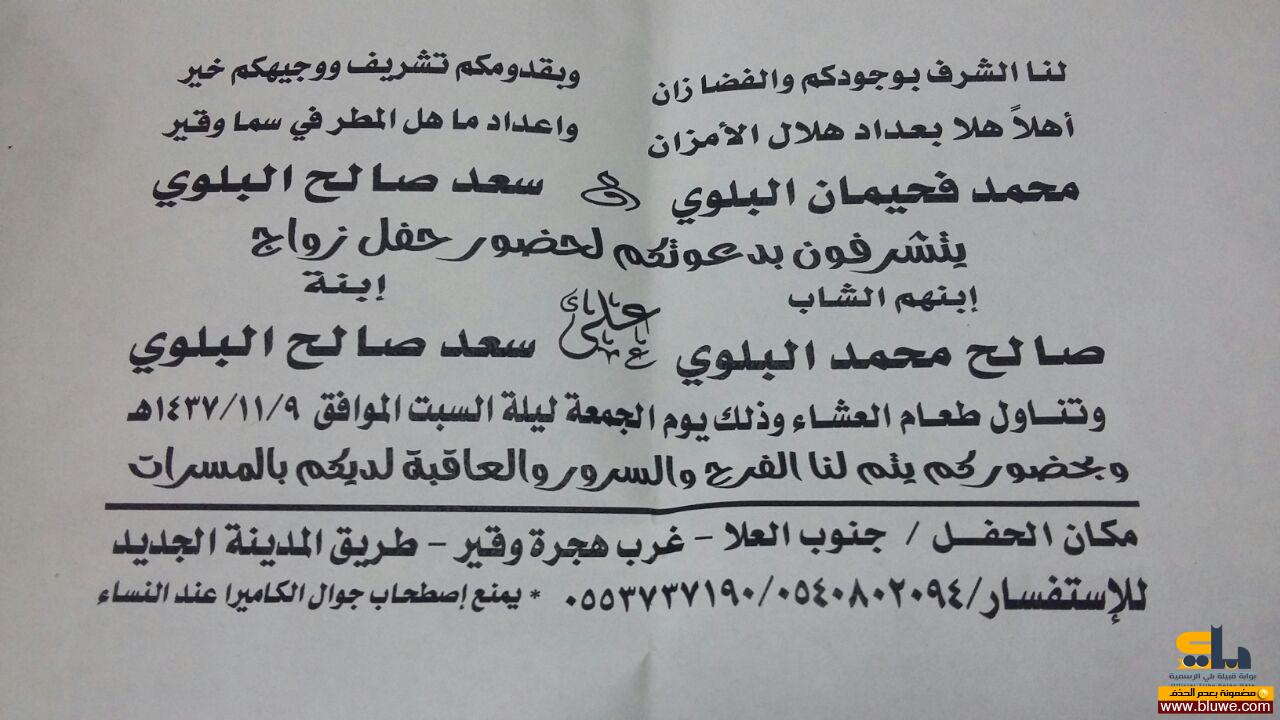 لنا الشرف بوجودكم والفضا زان وبقدومكم تشريف ووجيهكم خير
أهلاً هلا بعداد هلال الأمزان واعداد ما هل المطر في سما وقير
محمد فحيمان البلوي و سعد صالح البلوي
يتشرفون بدعوتكم لحضور حفل زواج
إبنهم الشاب إبنة
صالح محمد البلوي على سعد صالح البلوي
وتناول طعام العشاء وذلك يوم الجمعة ليلة السبت الموافق ١٤٣٧/١١/٩هـ
وبحضوركم يتم لنا الفرح والسرور والعاقبة لديكم بالمسرات
مكان الحفل / جنوب العلا - غرب هجرة وقير - طريق المدينة الجديد
للإستفسار/٠٥٤٠٨٠٢٠٩٤/٠٥٥٣٧٣٧١٩٠ * يمنع إصطحاب جوال الكاميرا عند النساء
بلي
بوابة قبيلة بلي الرسمية
مضمونة بعدم الحذف
www.bluwe.com